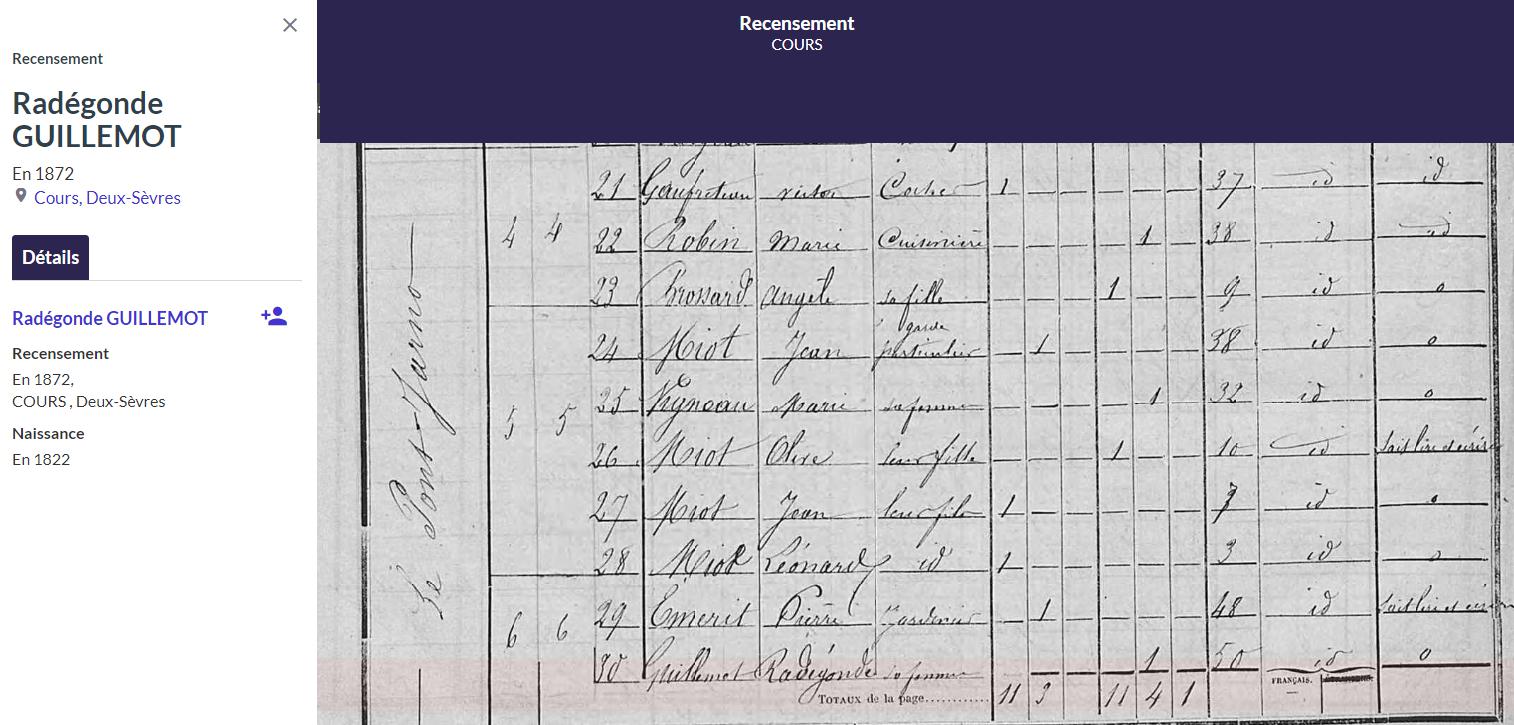 Recensement
Radégonde
GUILLEMOT
En 1872
Cours, Deux-Sèvres
Détails
Radégonde GUILLEMOT
Recensement
En 1872,
COURS , Deux-Sèvres
Naissance
En 1822
Recensement
COURS
Le Pont-Jarno
21 1 37 id id
4 4 22 Robin Marie Cuisinière 1 38 id id
23 Brossard Angèle sa fille 1 9 id o
24 Miot Jean garde particulier 1 38 id o
5 5 25 Marie sa femme 1 32 id o
26 Miot Olive leur fille 1 10 id sait lire et écrire
27 Miot Jean leur fils 1 7 id o
28 Miot Léonard id 1 3 id o
6 6 29 Emerit Pierre Jardinier 1 48 id sait lire et écrire
30 Guillemot Radégonde sa femme 1 50 id o
FRANÇAIS.
TOTAUX de la page 11 3 11 4 1